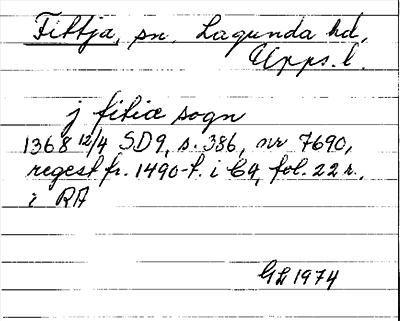 Fittja, sn, Lagunda hd,
Upps. l.
j fitiæ sogn
1368 12/4 SD9, s. 386, nr 7690,
regest fr. 1490-t. i C4, fol. 22 r.,
i RA
GL 1974